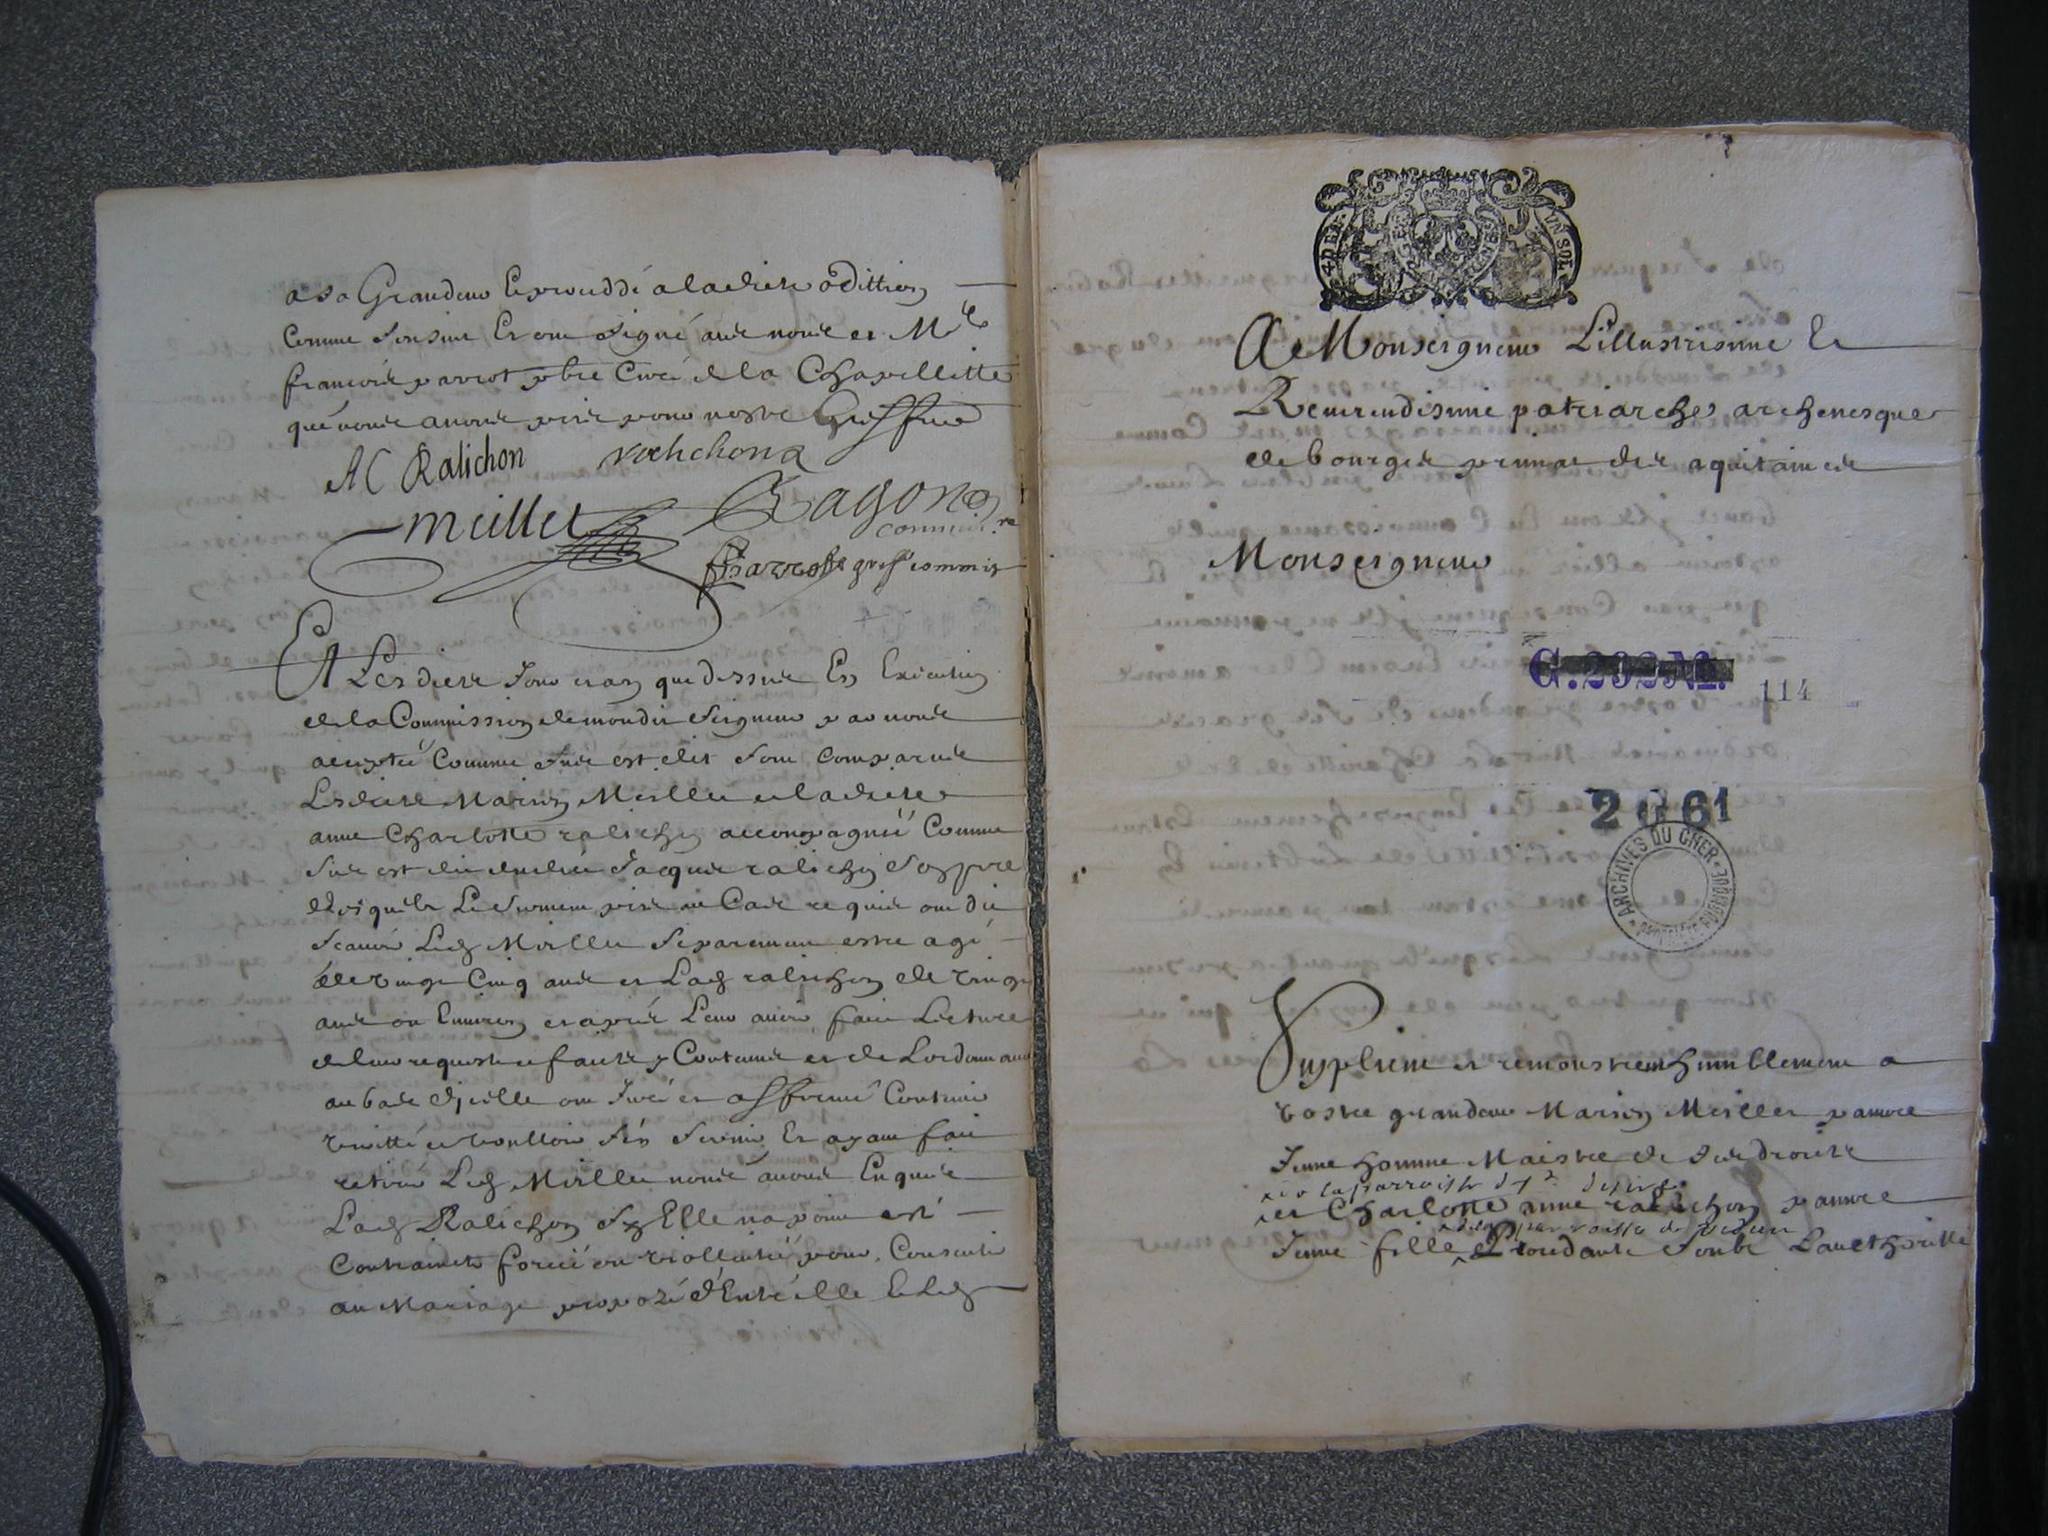 a sa Grandeur Et procedé a ladicte addition
comme sensuit Et ont signé avec nous et Me
françois parrot pbre Curé de la Chapellette
que nous avons pris pour nostre Greffier
AC Ralichon rochchona
meillet Ragon
commiss.re
Parrot greff commis
Et Lesdicts Jour et an que dessus En Execution
de la Commission de mondit Seigneur par nous
acceptée Comme sus est dit sont comparus
Lesdicts Marien Meillet et ladicte
anne Charlotte ralichon accompagnée Comme
sus est dit dudict Jacques ralichon son pere
desquels Le serment pris au Cas requis ont dit
scavoir Led Meillet separement estre agé
de vingt Cinq ans et Lad ralichon de vingt
ans ou Environ et aprés Leur avoir fait Lecture
de leur requeste faits y Contenus et de Lordonnance
au bas dicelle ont Juré et affirmé Contenir
veritté et voulloir sen servir Et ayant fait
retirer Led Meillet nous avons Enquis
Lad Ralichon sy Elle na point esté
Contrainte forcée ou viollentée pour Consentir
au Mariage proposé d'Entre elle Et Led
UN SOL
A Monseigneur L'illustrisime Et
Reverendisime patriarche, archevesque
de bourges primat des aquitaines
Monseigneur
G. 292 M.
114
2 G 61
ARCHIVES DU CHER
Supplient et remonstrent humblement a
vostre grandeur Marien Meillet pauvre
Jeune homme Maistre de
de la parroisse
et Charlotte anne ralichon pauvre
de la parroisse de
Jeune fille